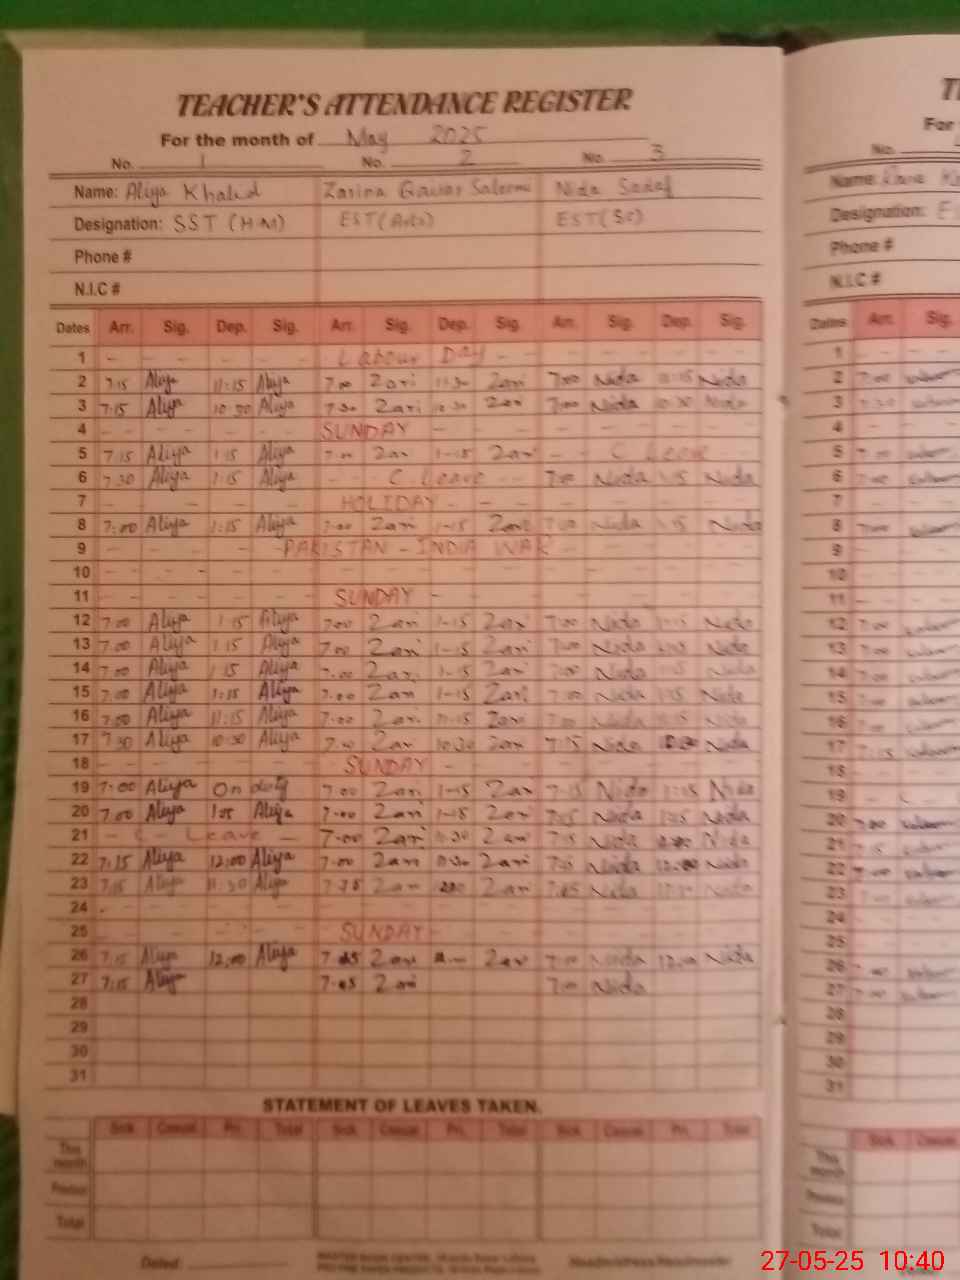 TEACHER'S ATTENDANCE REGISTER
For the month of May 2025
No. 1 No. 2 No. 3
Name: Aliya Khalid Zarina Nida Sadaf
Designation: SST (H.M) EST(Arts) EST(SC)
Phone #
N.I.C #
Dates Arr. Sig. Dep. Sig. Arr. Sig. Dep. Sig. Arr. Sig. Dep. Sig.
1 Labour Day
2 7:15 Aliya 11:15 Aliya 7:00 Zari Zari 7:00 Nida 11:15 Nida
3 7:15 Aliya 10:30 Aliya 7:30 Zari 10:30 Zari 7:00 Nida 10:30 Nida
4 SUNDAY
5 7:15 Aliya 1:15 Aliya Zari 1-15 Zari C Leave
6 7:30 Aliya 1:15 Aliya C Leave 7:00 Nida Nida
7 HOLIDAY
8 7:00 Aliya 1:15 Aliya 7:00 Zari 1-15 Zari 7:00 Nida Nida
9 PAKISTAN - INDIA WAR
10
11 SUNDAY
12 7:00 Aliya 1:15 Aliya 7:00 Zari 1-15 Zari 7:00 Nida 1:15 Nida
13 7:00 Aliya 1:15 Aliya 7:00 Zari 1-15 Zari 7:00 Nida Nida
14 7:00 Aliya 1:15 Aliya 7:00 Zari 1-15 Zari 7:00 Nida Nida
15 7:00 Aliya 1:15 Aliya 7:00 Zari 1-15 Zari 7:00 Nida 1:15 Nida
16 7:00 Aliya 11:15 Aliya 7:00 Zari 11-15 Zari 7:00 Nida Nida
17 7:30 Aliya 10:30 Aliya Zari 10:30 Zari 7:15 Nida 10:30 Nida
18 SUNDAY
19 7:00 Aliya On duty 7:00 Zari 1-15 Zari 7:15 Nida 1:15 Nida
20 7:00 Aliya Aliya 7:00 Zari 1-15 Zari 7:15 Nida 1:15 Nida
21 C - Leave 7:00 Zari 11:30 Zari 7:15 Nida Nida
22 7:15 Aliya 12:00 Aliya 7:00 Zari Zari 7:15 Nida 12:00 Nida
23 7:15 Aliya 11:30 Aliya Zari Zari Nida Nida
24
25 SUNDAY
26 7:15 Aliya 12:00 Aliya 7:45 Zari Zari 7:00 Nida 12:00 Nida
27 7:15 Aliya 7:45 Zari 7:00 Nida
28
29
30
31
STATEMENT OF LEAVES TAKEN.
Sick Casual Pri. Total Sick Casual Pri. Total Sick Casual Pri. Total
This month
Previous
Total
Dated
For
No.
Name:
Designation:
Phone #
N.I.C #
Dates Arr. Sig.
1
2
3
4
5
6
7
8
9
10
11
12
13
14
15
16
17
18
19
20
21
22
23
24
25
26
27
28
29
30
31
Sick Casual
This month
Previous
Total
27-05-25 10:40